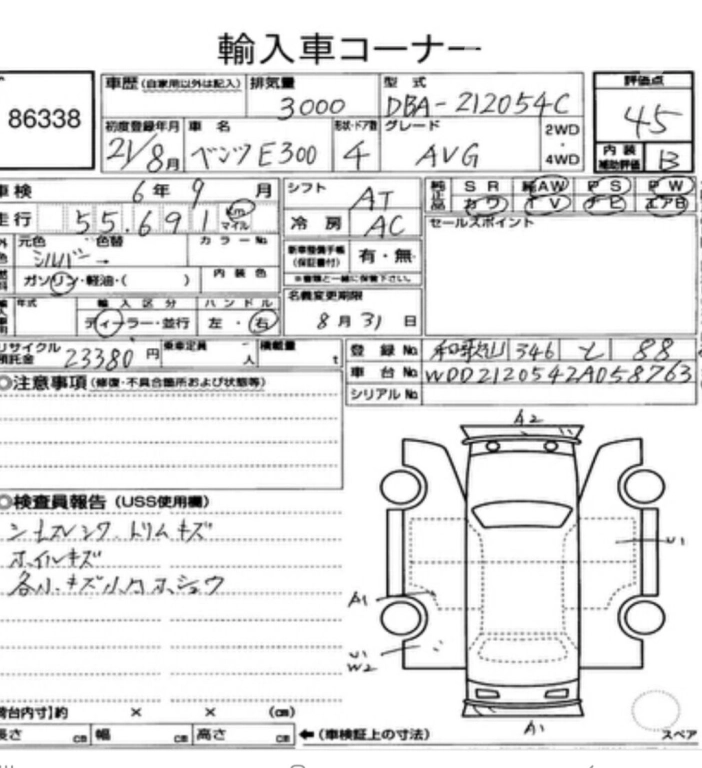 輸入車コーナー
86338
車歴 (自家用以外は記入) 排気量 3000 型式 DBA-212054C 評価点 45
初度登録年月 21/8月 車名 ベンツE300 形状・ドア数 4 グレード AVG 2WD・4WD 内装補助評価 B
車検 6年9月 シフト AT 純正品 SR 純AW PS PW
カワ TV ナビ エアB
走行 55,691 km マイル 冷房 AC セールスポイント
元色 シルバー → 色替 カラーNo. 新車整備手帳(保証書付) 有・無
ガソリン・軽油・( ) 内装色 ※書類と一緒に保管下さい。
年式 輸入区分 ディーラー・並行 ハンドル 左・右 名義変更期限 8月31日
リサイクル預託金 23380円 乗車定員 人 積載量 t 登録No. 和歌山 346 と 88
車台No. WDD2120542A058763
シリアルNo.
◎注意事項 (修復・不具合箇所および状態等)
A2
◎検査員報告 (USS使用欄)
シートスレシワ、トリムキズ
ホイルキズ
各小キズ小凹ホシュウ
U1
A1
U1
W2
A1
荷台内寸】約 × × (cm)
長さ cm 幅 cm 高さ cm ←(車検証上の寸法) スペア